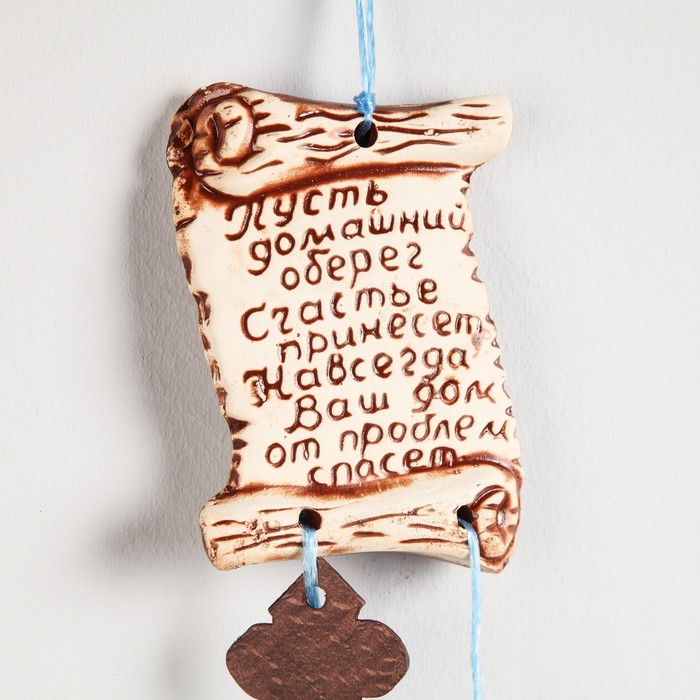 Пусть
домашний
оберег
Счастье
принесет
Навсегда
Ваш дом
от проблем
спасет